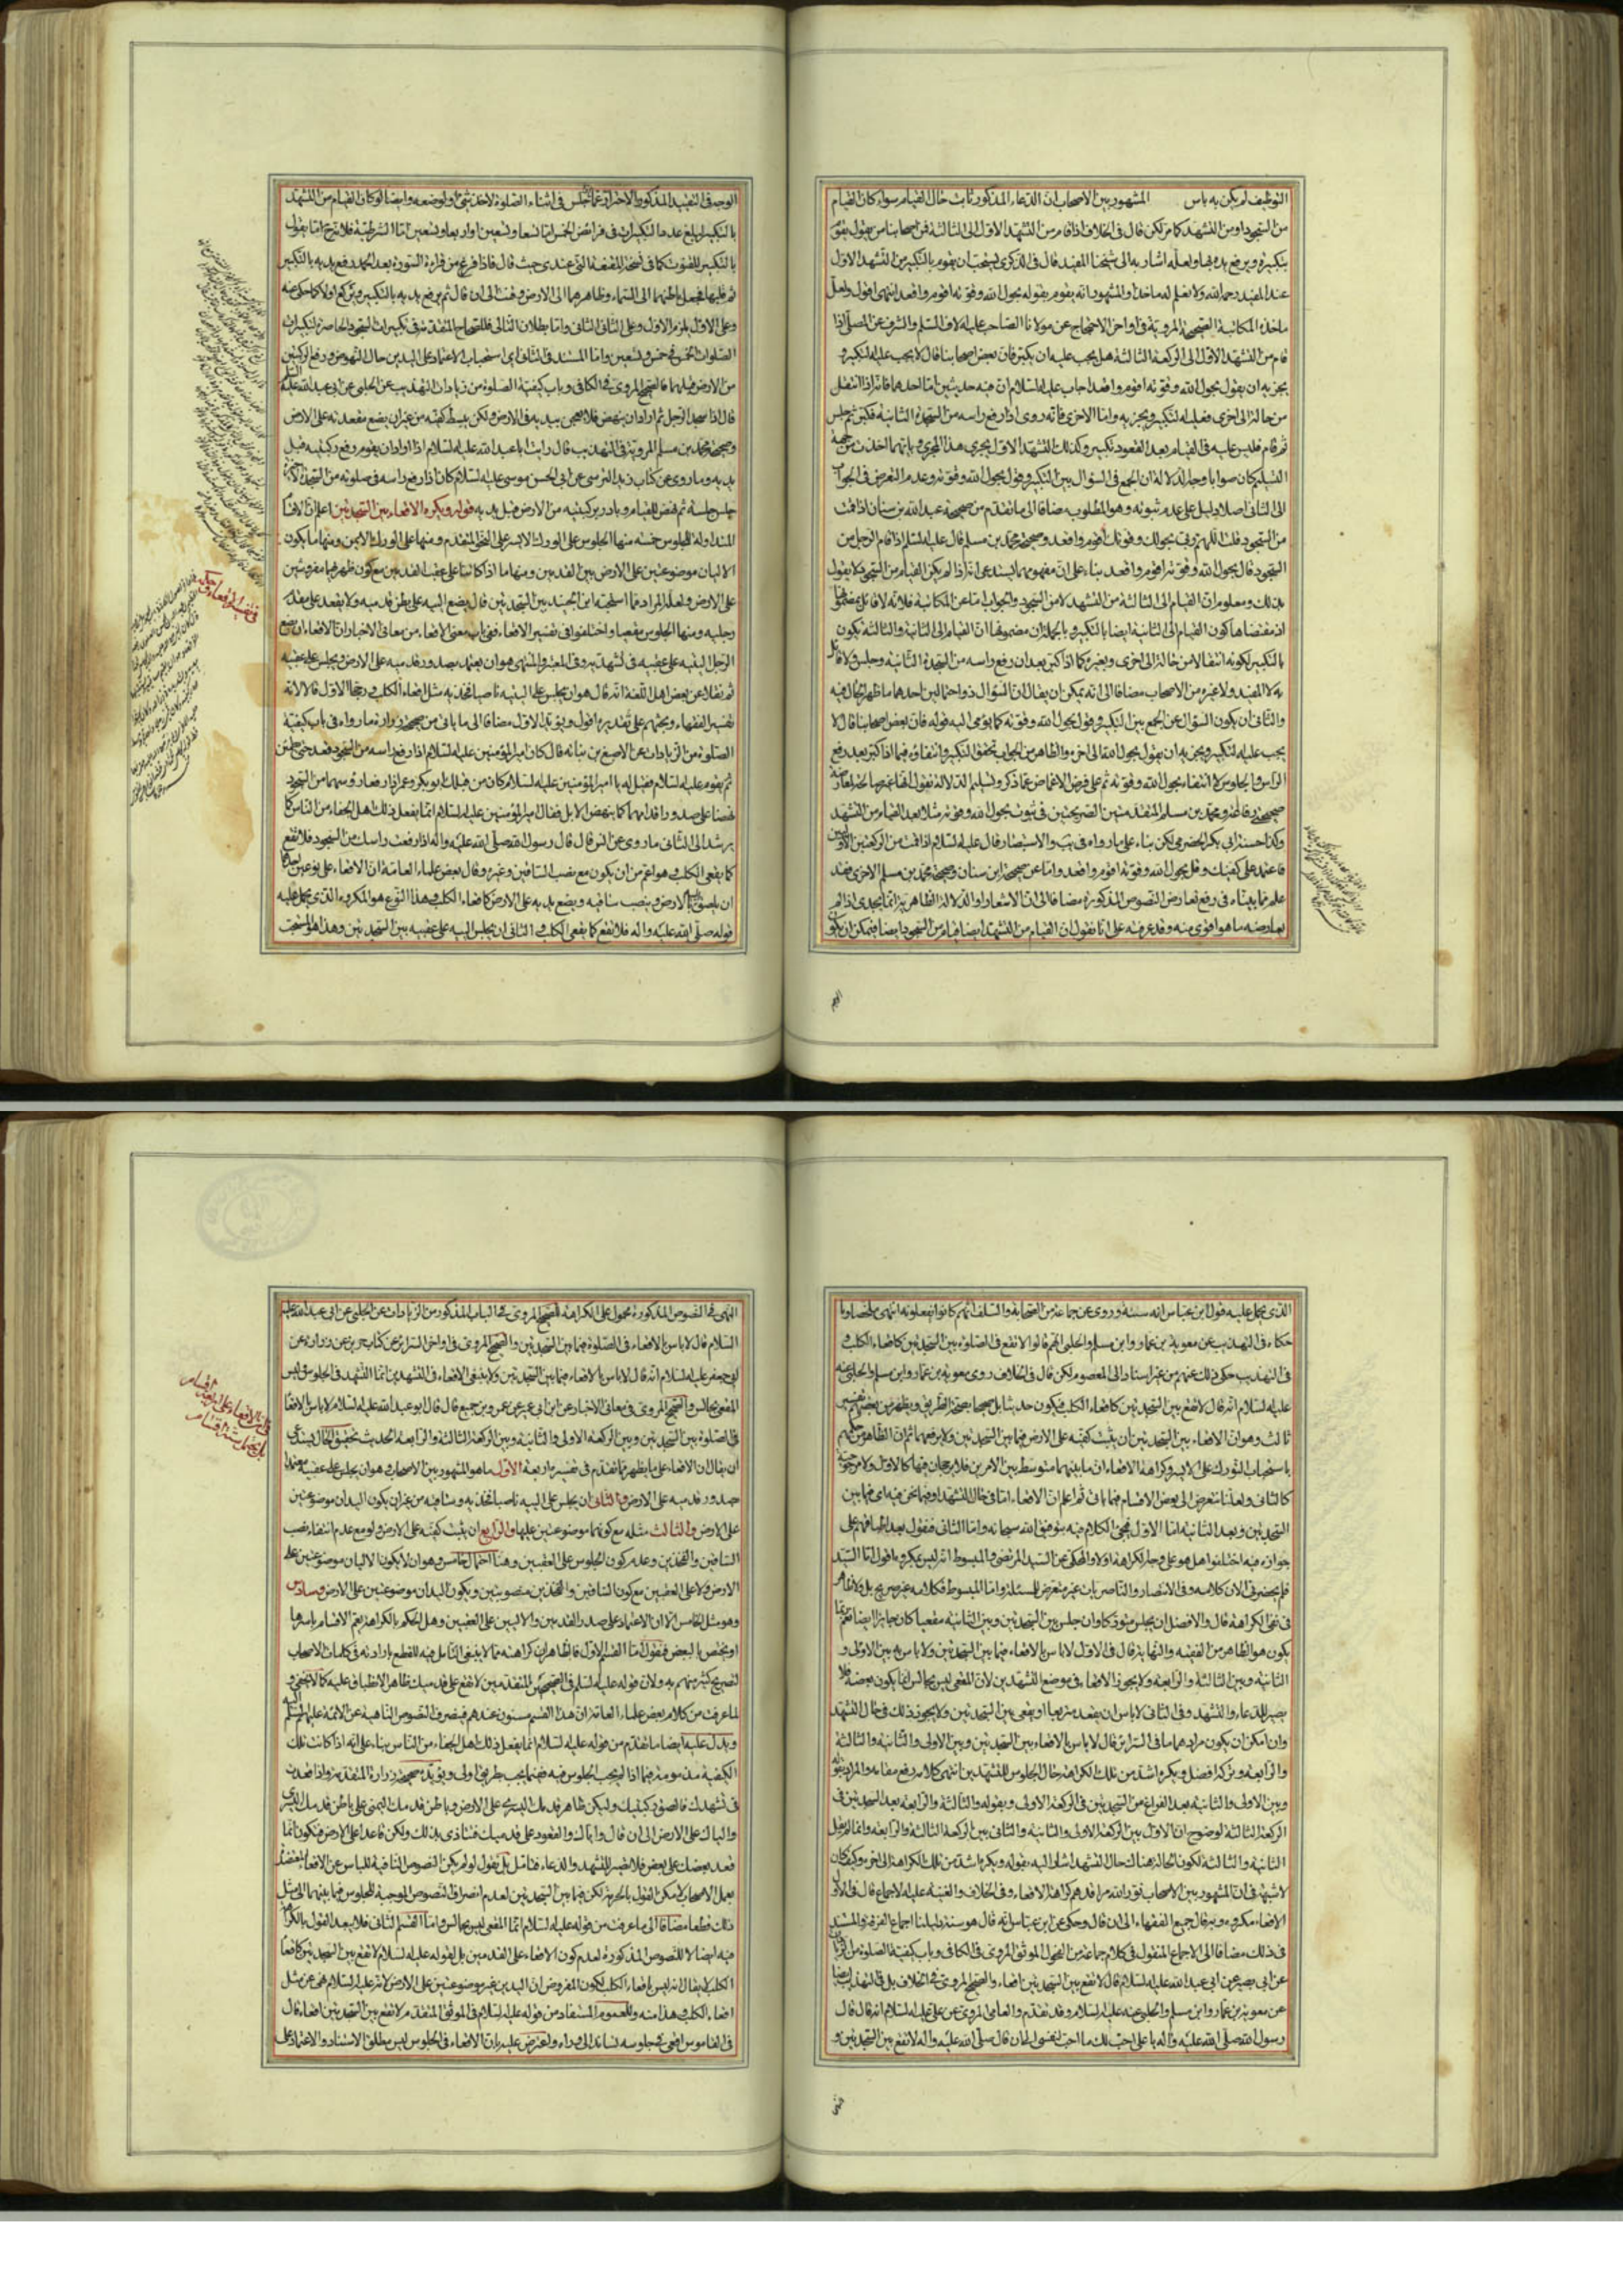 التوظيف لم يكن به باس المشهور بين الاصحاب ان الدعاء المذكور ثابت حال القيام سواء كان القيام
من السجود او من التشهد كما مر لكن قال في الخلاف اذا قام من التشهد الاول الى الثالثة فمن اصحابنا من يقول يقوم
بتكبيرة ويرفع يديه بها ولعله اشار به الى شيخنا المفيد قال في الذكرى يستحب ان يقوم بالتكبير من التشهد الاول
عند المفيد رحمه الله ولا نعلم له ماخذا والمشهور انه يقوم بقوله بحول الله وقوته اقوم واقعد انتهى اقول ولعل
ماخذه المكاتبة الصحيحة المروية في اواخر الاحتجاج عن مولانا الصاحب عليه الاف السلام والشرف عن المصلى اذا
قام من التشهد الاول الى الركعة الثالثة هل يجب عليه ان يكبر فان بعض اصحابنا قال لا يجب عليه التكبير و
يجزيه ان يقول بحول الله وقوته اقوم واقعد اجاب عليه السلام ان فيه حديثين اما احدهما فانه اذا انتقل
من حالة الى اخرى فعليه التكبير واما الاخرى فانه روى اذا رفع راسه من السجدة الثانية فكبر ثم جلس
ثم قام فليس عليه في القيام بعد القعود تكبير وكذلك التشهد الاول يجري هذا المجرى وبايهما اخذت من جهة
التسليم كان صوابا وجه الدلالة ان الجمع في السؤال بين التكبير وقول بحول الله وقوته وعدم التعرض في الجواب
الى الثاني اصلا دليل على عدم ثبوته وهو المطلوب مضافا الى ما تقدم من صحيحة عبد الله بن سنان اذا قمت
من السجود قلت اللهم ربي بحولك وقوتك اقوم واقعد وصحيحة محمد بن مسلم قال عليه السلام اذا قام الرجل من
السجود قال بحول الله وقوته اقوم واقعد بناء على ان مفهومهما يستدعى انه اذا لم يكن القيام من السجود لا يقول
بذلك ومعلوم ان القيام الى الثالثة من التشهد لا من السجود والجواب اما عن المكاتبة فلانه لا قائل بمضمونها
اذ مقتضاها كون القيام الى الثانية ايضا بالتكبير وبالجملة ان مضمونها ان القيام الى الثانية والثالثة يكون
بالتكبير لكونه انتقالا من حالة الى اخرى وبغيره كما اذا كبر بعد ان رفع راسه من السجدة الثانية وجلس ولا قائل
به لا المفيد ولا غيره من الاصحاب مضافا الى انه يمكن ان يقال ان السؤال ذو احتمالين احدهما ما ظهر الحال فيه
والثاني ان يكون السؤال عن الجمع بين التكبير وقول بحول الله وقوته كما يؤمى اليه قوله فان بعض اصحابنا قال لا
يجب عليه التكبير ويجزيه ان يقول بحول الله الى اخره والظاهر من الجواب تحقق التكبير وانتفاؤه فيما اذا كبر بعد رفع
الراس والجلوس لا انتفاء بحول الله وقوته ثم على فرض الاغماض عما ذكر وتسليم الدلالة نقول انها غير صالحة لمعارضة
صحيحتي رفاعة ومحمد بن مسلم المتقدمتين الصريحتين في ثبوت بحول الله وقوته مثلا بعد القيام من التشهد
وكذا حسنة ابي بكر الحضرمي لكن بناء على ما رواه في يب والاستبصار قال عليه السلام اذا قمت من الركعتين الاوليين
فاعتمد على كفيك وقل بحول الله وقوته اقوم واقعد واما عن صحيحة ابن سنان وصحيحة محمد بن مسلم الاخرى فقد
علم مما بيناه في رفع تعارض النصوص المذكورة مضافا الى ان الاشعار او الدلالة الظاهرية انما يجدي اذا لم
يعارضه ما هو اقوى منه وقد عرفته على انا نقول ان القيام من التشهد ايضا قيام من السجود ايضا فيمكن ان يكون
الوجه في التقييد المذكور الاحتراز عما يجلس في اثناء الصلوة لاخذ شيء او لوضعه وايضا لو كان القيام من التشهد
بالتكبير لبلغ عدد التكبيرات في فرائض الخمس اما تسعا وتسعين او اربعا وتسعين اما الشرطية فلانه ح اما يقول
بالتكبير للقنوت كما في نسخة المقنعة التي عندي حيث قال فاذا فرغ من قراءة السورة بعد الحمد رفع يديه بالتكبير
ثم قلبها فيجعل باطنهما الى السماء وظاهرهما الى الارض وقنت الى ان قال ثم يرفع يديه بالتكبير ويركع اولا كما حكى عنه
وعلى الاول يلزم الاول وعلى الثاني الثاني واما بطلان التالي فللصحاح المتقدمة في تكبيرات السجود الحاصرة لتكبيرات
الصلوات الخمس في خمس وتسعين واما المستند في الثاني اى استحباب الاعتماد على اليدين حال النهوض ورفع الركبتين
من الارض قبلهما فالصحيح المروى في الكافي وباب كيفية الصلوة من زيادات التهذيب عن الحلبى عن ابى عبد الله عليه السلام
قال اذا سجد الرجل ثم اراد ان ينهض فلا يعجن بيديه في الارض ولكن يبسط كفيه من غير ان يضع مقعدته على الارض
وصحيحة محمد بن مسلم المروية في التهذيب قال رايت ابا عبد الله عليه السلام اذا اراد ان يقوم رفع ركبتيه قبل
يديه وما روى عن كتاب زيد النرسى عن ابى الحسن موسى عليه السلام كان اذا رفع راسه في صلوته من السجدة الاخيرة
جلس جلسة ثم نهض للقيام وبادر بركبتيه من الارض قبل يديه قوله ويكره الاقعاء بين السجدتين اعلم ان الاقسام
المتداولة للجلوس خمسة منها الجلوس على الورك الايسر على النحو المتقدم ومنها على الورك الايمن ومنها ما يكون
الاليان موضوعتين على الارض بين القدمين ومنها ما اذا كانتا على عقب القدمين مع كون ظهرهما مفروشتين
على الارض ولعله المراد مما استحبه ابن الجنيد بين السجدتين قال يضع اليييه على بطن قدميه ولا يقعد على مقدم
رجليه ومنها الجلوس مقعيا واختلفوا في تفسير الاقعاء ففي باب معنى الاقعاء من معاني الاخبار ان الاقعاء ان يضع
الرجل اليييه على عقبيه في تشهديه وفي المعتبر والمنتهى هو ان يعتمد بصدور قدميه على الارض ويجلس على عقبيه
ثم نقلا عن بعض اهل اللغة انه قال هو ان يجلس على اليتيه ناصبا فخذيه مثل اقعاء الكلب ورجحا الاول قالا لانه
تفسير الفقهاء وبحثهم على تقديره اقول ويؤيد الاول مضافا الى ما ياتى من صحيحة زرارة ما رواه في باب كيفية
الصلوة من الزيادات عن الاصبغ بن نباتة قال كان امير المؤمنين عليه السلام اذا رفع راسه من السجود قعد حتى يطمئن
ثم يقوم عليه السلام فقيل له يا امير المؤمنين عليه السلام كان من قبلك ابو بكر وعمر اذا رفعا رؤسهما من السجود
نهضا على صدور اقدامهما كما ينهض الابل فقال امير المؤمنين عليه السلام انما يفعل ذلك اهل الجفاء من الناس كما
يرشد الى الثاني ما روى عن انس قال قال رسول الله صلى الله عليه واله اذا رفعت راسك من السجود فلا تقع
كما يقعى الكلب هو اعم من ان يكون مع نصب الساقين وغيره وقال بعض علماء العامة ان الاقعاء على نوعين احدهما
ان يلصق الييه بالارض وينصب ساقيه ويضع يديه على الارض كاقعاء الكلب هذا النوع هو المكروه الذى يحمل عليه
قوله صلى الله عليه واله فلا تقع كما يقعى الكلب والثاني ان يجلس الييه على عقبيه بين السجدتين وهذا هو المستحب
الذى يحمل عليه قول ابن عباس انه سنة وروى عن جماعة من الصحابة والسلف انهم كانوا يفعلونه انتهى ملخصا وما
حكاه في التهذيب عن معوية بن عمار وابن مسلم والحلبى انهم قالوا لا تقع في الصلوة بين السجدتين كاقعاء الكلب و
في التهذيب حكى ذلك عنهم من غير اسناد الى المعصوم لكن قال في الخلاف روى معوية بن عمار وابن مسلم والحلبى عنه
عليه السلام انه قال لا تقع بين السجدتين كاقعاء الكلب فيكون حديثا بل صحيحا بصحة الطريق ويظهر من بعضهم تفسير
ثالث وهو ان الاقعاء بين السجدتين ان يثبت كفيه على الارض فيما بين السجدتين ولا يرفعهما ثم ان الظاهر من حكمهم
باستحباب التورك على الايسر وكراهة الاقعاء ان ما بينهما متوسط بين الامرين فلا رجحان فيها كالاول ولا مرجوحية
كالثاني ولعلنا نتعرض الى بعض الاقسام فيما ياتى ثم اعلم ان الاقعاء اما في حال التشهد او فيما نحن فيه اى فيما بين
السجدتين وبعد الثانية اما الاول فيجىء الكلام فيه بتوفيق الله سبحانه واما الثاني فنقول بعد اطباقهم على
جوازه فيه اختلفوا هل هو على وجه الكراهة اولا والمحكى عن السيد المرتضى والمبسوط انه ليس بمكروه اقول اما السيد
فلم يحضرني الان كلامه وفى الانتصار والناصريات غير متعرض للمسئلة واما المبسوط فكلامه غير صريح بل ولا ظاهر
في نفى الكراهة قال والافضل ان يجلس متوركا وان جلس بين السجدتين وبين الثانية مقعيا كان جايزا ايضا نعم انما
يكون هو الظاهر من الفقيه والنهاية قال في الاول لا باس بالاقعاء فيما بين السجدتين ولا باس به بين الاولى و
الثانية وبين الثالثة والرابعة ولا يجوز الاقعاء في موضع التشهدين لان المقعى ليس بجالس انما يكون بعضه فلا
يصير للدعاء والتشهد وفي الثاني لا باس ان يقعد متربعا او يقعى بين السجدتين ولا يجوز ذلك في حال التشهد
وان امكن ان يكون مرادهما ما في السرائر قال لا باس بالاقعاء بين السجدتين وبين الاولى والثانية والثالثة
والرابعة وتركه افضل ويكره اشد من تلك الكراهة حال الجلوس للتشهدين انتهى كلامه رفع مقامه والمراد بقوله
وبين الاولى والثانية بعد الفراغ من السجدتين في الركعة الاولى وبقوله والثالثة والرابعة بعد السجدتين في
الركعة الثالثة لوضوح ان الاول بين الركعة الاولى والثانية والثاني بين الركعة الثالثة والرابعة وانما لم يقل
الثانية والثالثة لكون الحالة هناك حال التشهد اشار اليه بقوله ويكره اشد من تلك الكراهة الى اخره وكيف كان
لا شبهة في ان المشهور بين الاصحاب نور الله مراقدهم كراهة الاقعاء وفي الخلاف والغنية عليه الاجماع قال في الاول
الاقعاء مكروه وبه قال جميع الفقهاء الى ان قال وحكى عن ابن عباس انه قال هو سنة دليلنا اجماع الفرقة والمستند
في ذلك مضافا الى الاجماع المنقول في كلام جماعة من الفحول الموثق المروى في الكافي وباب كيفية الصلوة من الزيادات
عن ابى بصير عن ابى عبد الله عليه السلام قال لا تقع بين السجدتين اقعاء والصحيح المروى في الخلاف بل في التهذيب ايضا
عن معوية بن عمار وابن مسلم والحلبى عنه عليه السلام وقد تقدم والعامى المروى عن على عليه السلام انه قال قال
رسول الله صلى الله عليه واله يا على احب لك ما احب لنفسى الى ان قال صلى الله عليه واله لا تقع بين السجدتين و
النهى في النصوص المذكورة محمول على الكراهة للصحيح المروى في الباب المذكور من الزيادات عن الحلبى عن ابى عبد الله عليه
السلام قال لا باس بالاقعاء في الصلوة فيما بين السجدتين والصحيح المروى في اواخر السرائر عن كتاب حريز عن زرارة عن
ابى جعفر عليه السلام انه قال لا باس بالاقعاء فيما بين السجدتين ولا ينبغى الاقعاء في التشهدين انما التشهد في الجلوس وليس
المقعى بجالس والصحيح المروى في معانى الاخبار عن ابن ابى عمير عن عمرو بن جميع قال قال ابو عبد الله عليه السلام لا باس بالاقعاء
في الصلوة بين السجدتين وبين الركعة الاولى والثانية وبين الركعة الثالثة والرابعة الحديث تحقيق الحال يستدعى
ان يقال ان الاقعاء على ما يظهر مما تقدم في تفسيره اربعة الاول ما هو المشهور بين الاصحاب وهو ان يجلس على عقبيه معتمدا
صدور قدميه على الارض والثاني ان يجلس على اليييه ناصبا فخذيه وساقيه من غير ان يكون اليدان موضوعتين
على الارض والثالث مثله مع كونهما موضوعتين عليها والرابع ان يثبت كفيه على الارض ولو مع عدم انتفاء نصب
الساقين والفخذين وعدم كون الجلوس على العقبين وهنا احتمال خامس وهو ان لا يكون الاليان موضوعتين على
الارض ولا على العقبين مع كون الساقين والفخذين منصوبتين ويكون اليدان موضوعتين على الارض وسادس
وهو مثل الخامس الا ان الاعتماد على صدر القدمين والاليين على العقبين وهل الحكم بالكراهة يعم الاقسام باسرها
او يختص بالبعض فنقول اما القسم الاول فالظاهر ان كراهته مما لا ينبغى التامل فيه للقطع بارادته في كلمات الاصحاب
لتصريح كثير منهم به ولان قوله عليه السلام في الصحيحين المتقدمين لا تقع على قدميك ظاهر الانطباق عليه كما لا يخفى و
لما عرفت من كلام بعض علماء العامة ان هذا القسم مسنون عندهم فينصرف النصوص الناهية عن الائمة عليهم السلام اليه
ويدل عليه ايضا ما تقدم من قوله عليه السلام انما يفعل ذلك اهل الجفاء من الناس بناء على انه اذا كانت تلك
الكيفية مذمومة فيما اذا لم يجب الجلوس فيه ففيما يجب بطريق اولى ويؤيده صحيحة زرارة المتقدمة واذا قعدت
في تشهدك فالصق ركبتيك وليكن ظاهر قدمك اليسرى على الارض وباطن قدمك اليمنى على باطن قدمك اليسرى
والياك على الارض الى ان قال واياك والقعود على قدميك فتتاذى بذلك ولكن قاعدا على الارض فتكون انما
قعد بعضك على بعض فلا تصبر للتشهد والدعاء فتامل بل نقول لو لم يكن النصوص النافية للباس عن الاقعاء معتضدة
بعمل الاصحاب لامكن القول بالحرمة لكن فيما بين السجدتين لعدم انصراف النصوص الموجبة للجلوس فيما بينهما الى مثل
ذلك قطعا مضافا الى ما عرفت من قوله عليه السلام انما المقعى ليس بجالس واما القسم الثاني فلا يبعد القول بالكراهة
فيه ايضا لا للنصوص المذكورة لعدم كون الاقعاء على القدمين بل لقوله عليه السلام لا تقع بين السجدتين كاقعاء
الكلب لا يقال انه ليس باقعاء الكلب لكون المفروض ان اليدين غير موضوعتين على الارض لانه عليه السلام نهى عن مثل
اقعاء الكلب هذا منه وللعموم المستفاد من قوله عليه السلام في الموثق المتقدم لا تقع بين السجدتين اقعاء قال
في القاموس اقعى في جلوسه تساند الى ما وراءه واعترض عليه بان الاقعاء في الجلوس ليس مطلق الاستناد والاعتماد على